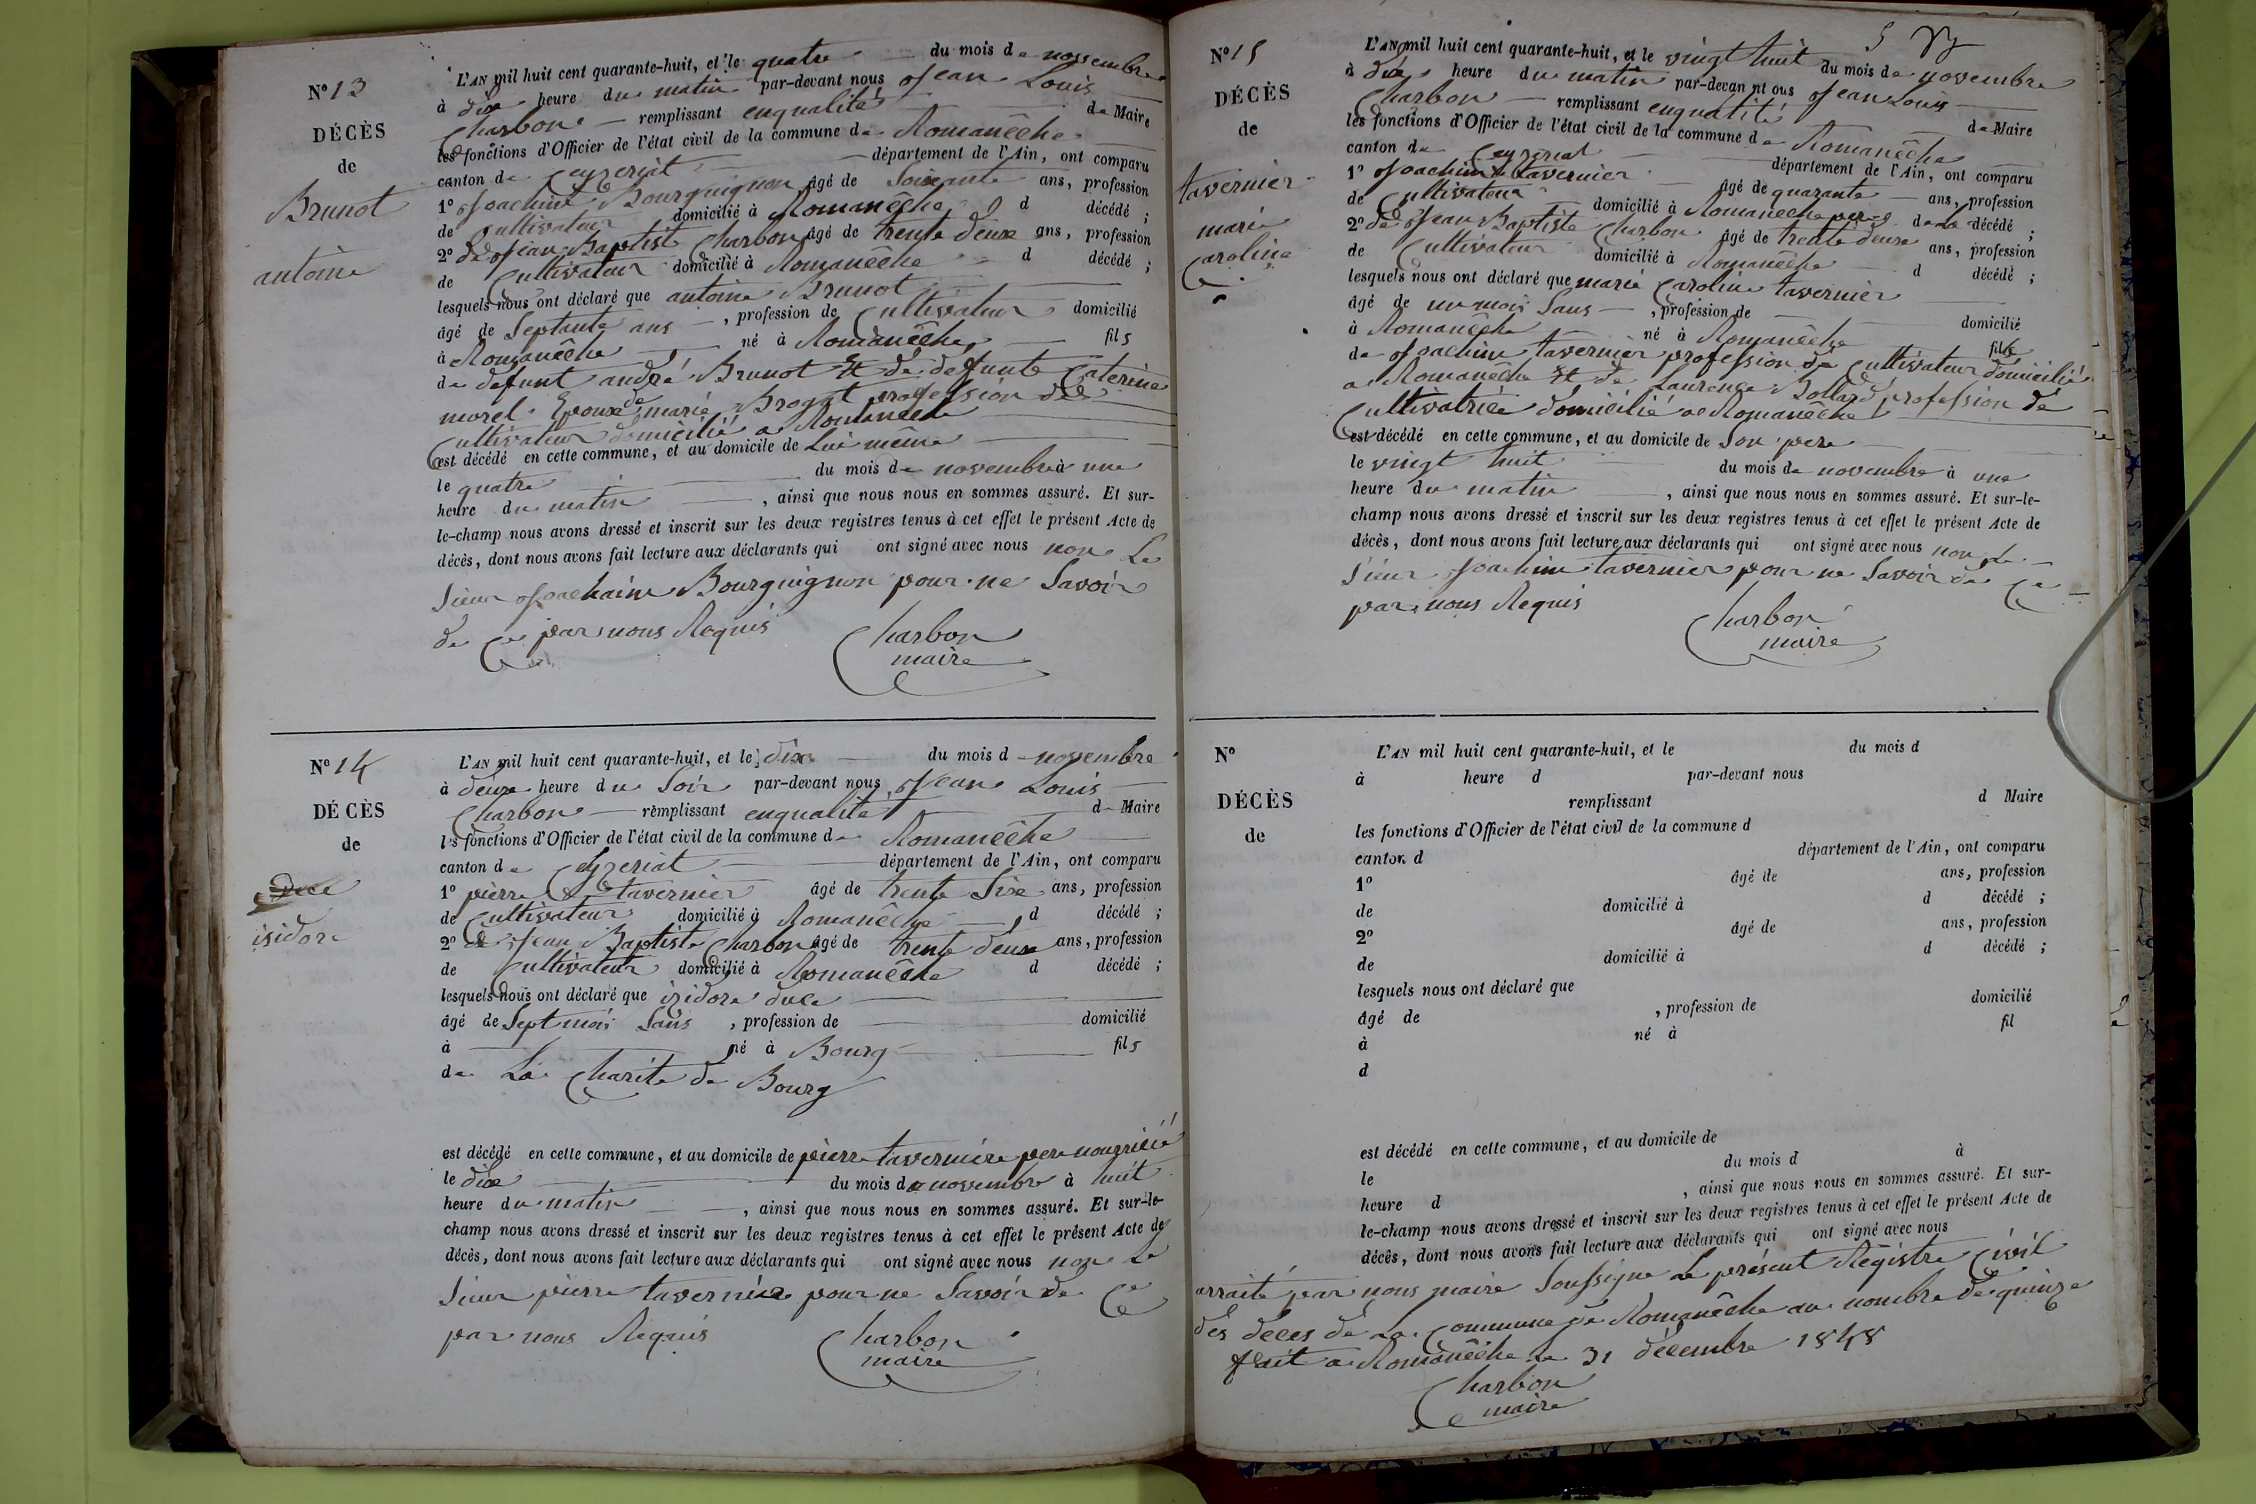 N° 13
DÉCÈS
de
Brunot
antoine
L'AN mil huit cent quarante-huit, et le quatre du mois de novembre
à dix heure du matin par-devant nous Jean Louis
Charbon remplissant enqualité de Maire
les fonctions d'Officier de l'état civil de la commune de Romanêche
canton de Ceyzeriat département de l'Ain, ont comparu
1° Joachim Bourguignon âgé de Soixante ans, profession
de Cultivateur domicilié à Romanêche d décédé ;
2° de Jean Baptist Charbon âgé de trente deux ans, profession
de Cultivateur domicilié à Romanêche d décédé ;
lesquels nous ont déclaré que antoine Brunot
âgé de Septante ans , profession de Cultivateur domicilié
à Romanêche né à Romanêche fils
de defunt andré Brunot Et de defunte Caterine
morel Epoux de marie Brogat profession de
Cultivateur domicilié a Romanêche
est décédé en cette commune, et au domicile de Lui même
le quatre du mois de novembre à une
heure du matin , ainsi que nous nous en sommes assuré. Et sur-
le-champ nous avons dressé et inscrit sur les deux registres tenus à cet effet le présent Acte de
décès, dont nous avons fait lecture aux déclarants qui ont signé avec nous non Le
Sieur Joachaim Bourguignon pour ne Savoir
de Ce par nous Requis
Charbon
maire
N° 14
DÉCÈS
de
isidore
L'AN mil huit cent quarante-huit, et le dix du mois d novembre
à deux heure du Soir par-devant nous Jean Louis
Charbon remplissant enqualité de Maire
les fonctions d'Officier de l'état civil de la commune de Romanêche
canton de Ceyzeriat département de l'Ain, ont comparu
1° pierre tavernier âgé de trente Six ans, profession
de Cultivateur domicilié à Romanêche d décédé ;
2° de Jean Baptiste Charbon âgé de trente deux ans, profession
de Cultivateur domicilié à Romanêche d décédé ;
lesquels nous ont déclaré que isidore duce
âgé de Sept mois Sans , profession de domicilié
à né à Bourg fils
de La Charite de Bourg
est décédé en cette commune, et au domicile de pierre tavernier pere nourricié
le dix du mois de novembre à huit
heure du matin , ainsi que nous nous en sommes assuré. Et sur-le-
champ nous avons dressé et inscrit sur les deux registres tenus à cet effet le présent Acte de
décès, dont nous avons fait lecture aux déclarants qui ont signé avec nous non Le
Sieur pierre tavernier pour ne Savoir de Ce
par nous Requis
Charbon
maire
5
N° 15
DÉCÈS
de
tavernier
marie
Caroline
L'AN mil huit cent quarante-huit, et le vingt huit du mois de novembre
à dix heure du matin par-devan nt ous Jean Louis
Charbon remplissant enqualité de Maire
les fonctions d'Officier de l'état civil de la commune de Romanêche
canton de Ceyzeriat département de l'Ain, ont comparu
1° Joachim tavernier âgé de quarante ans, profession
de Cultivateur domicilié à Romanêche pere de La décédé ;
2° de Jean Baptiste Charbon âgé de trente deux ans, profession
de Cultivateur domicilié à Romanêche d décédé ;
lesquels nous ont déclaré que marie Caroline tavernier
âgé de un mois Sans , profession de domicilié
à Romanêche né à Romanêche fille
de Joachim tavernier profession de Cultivateur domicilié
a Romanêche Et de Laurence Bollard profession de
Cultivatrice domicilié a Romanêche
est décédé en cette commune, et au domicile de Son pere
le vingt huit du mois de novembre à une
heure du matin , ainsi que nous nous en sommes assuré. Et sur-le-
champ nous avons dressé et inscrit sur les deux registres tenus à cet effet le présent Acte de
décès, dont nous avons fait lecture aux déclarants qui ont signé avec nous non Le
Sieur Joachim tavernier pour ne Savoir de Ce
par nous Requis
Charbon
maire
N°
DÉCÈS
de
L'AN mil huit cent quarante-huit, et le du mois d
à heure d par-devant nous
remplissant d Maire
les fonctions d'Officier de l'état civil de la commune d
canton d département de l'Ain, ont comparu
1° âgé de ans, profession
de domicilié à d décédé ;
2° âgé de ans, profession
de domicilié à d décédé ;
lesquels nous ont déclaré que
âgé de , profession de domicilié
à né à fil
d
est décédé en cette commune, et au domicile de
le du mois d à
heure d , ainsi que nous nous en sommes assuré. Et sur-
le-champ nous avons dressé et inscrit sur les deux registres tenus à cet effet le présent Acte de
décès, dont nous avons fait lecture aux déclarants qui ont signé avec nous
arraité par nous maire Soussigne Le présent Régistre Civil
des deces de La Commune de Romanêche au nombre de quinze
fait a Romanêche le 31 décembre 1848
Charbon
maire